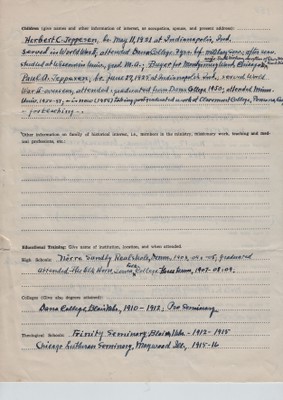 Children (give names and other information of interest, as occupation, spouse, and present address):
Herbert C. Jeppesen, b. May 11, 1921 at Indianapolis, Ind.
served in World War II, attended Dana College 2 yrs. by military serv. after war
studied at Wisconsin Univ., grad. M.A.; Buyer for Montgomery Ward, Chicago,
Paul A. Jeppesen, b. June 27, 1925 at Indianapolis, Ind. served World
War II - overseas, attended & graduated from Dana College 1950; attended Minn.
Univ. 1950-53; - is now (1955) taking postgraduate work at Claremont College, Pomona, Cal.
- for teaching. -
Other information on family of historical interest, i.e., interest in the ministry, missionary work, teaching and medical professions, etc.:
Educational Training: Give name of institution, location, and when attended.
High Schools: Nörre Sundby Realskole, Denm., graduated
attended the Elk Horn, Iowa College three term, 1907-08-09.
Colleges (Give also degrees attained):
Dana College, Blair, Nebr., 1910-1912, Pro Seminary
Theological Schools: Trinity Seminary, Blair, Nebr. - 1912-1915
Chicago Lutheran Seminary, Maywood, Ill., 1915-16